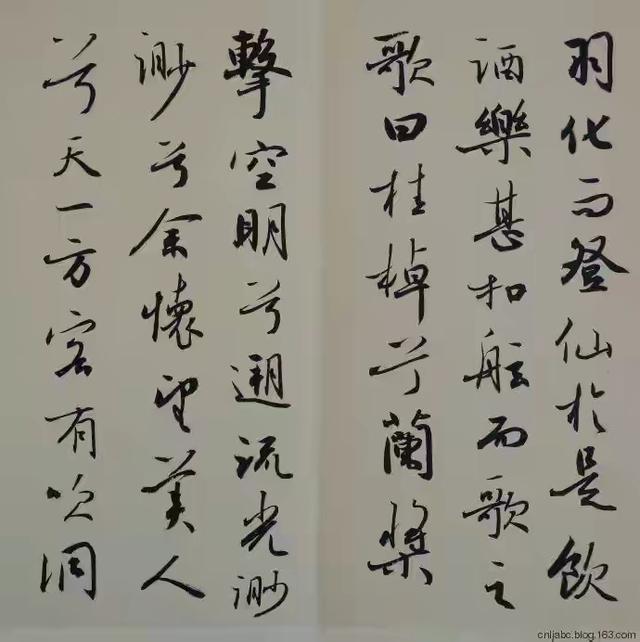 羽化而登仙於是飲
酒樂甚扣舷而歌之
歌曰桂棹兮蘭槳
擊空明兮遡流光渺
渺兮余懷望美人
兮天一方客有吹洞
cnljabc.blog.163.com